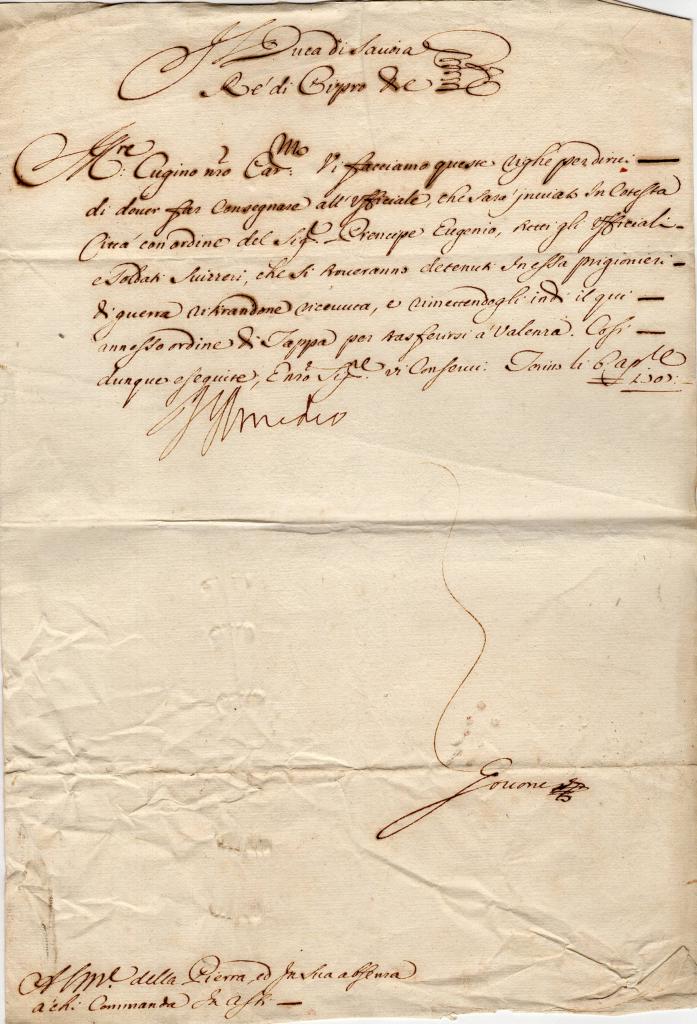 Il Duca di Savoia
Re' di Cipro &c
Mre: Cugino nro Carmo: Vi facciamo queste righe per dirvi:
di dover far Consegnare all'Vfficiale, che sarà inviato In Cotesta
Città con ordine del Sigr Prencipe Eugenio, tutti gli Vfficiali
e Soldati Suizzeri, che si troueranno detenuti In essa prigionieri
di guerra ritirandone riceuuta, e rimettendogli indi il qui
annesso ordine di Tappa per trasferirsi à Valenza. Così
dunque eseguite, e nro Sigre vi Conserui. Torino li 6 aple
1707:
V Amedeo
Gouone
Al Me. della Pierra, ed In sua absenza
à chi Commanda In Asti